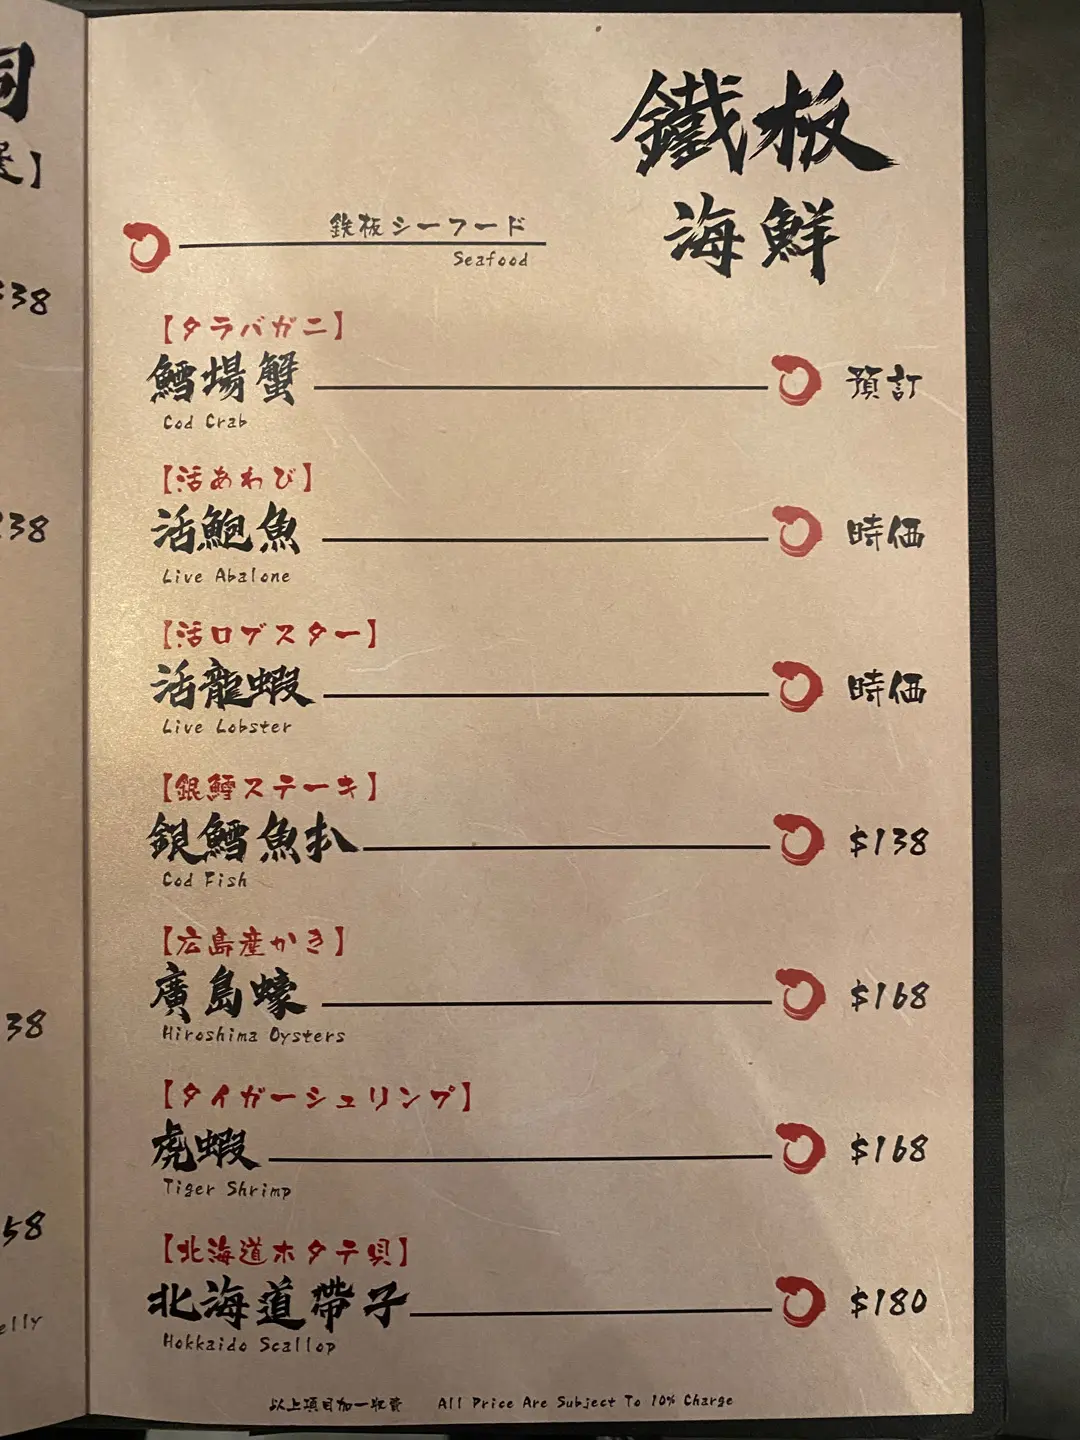 鐵板
海鮮
鉄板シーフード
Seafood
【タラバガニ】
鱈場蟹 預訂
Cod Crab
【活あわび】
活鮑魚 時価
Live Abalone
【活ロブスター】
活龍蝦 時価
Live Lobster
【銀鱈ステーキ】
銀鱈魚扒 $138
Cod Fish
【広島産かき】
廣島蠔 $168
Hiroshima Oysters
【タイガーシュリンプ】
虎蝦 $168
Tiger Shrimp
【北海道ホタテ貝】
北海道帶子 $180
Hokkaido Scallop
以上項目加一收費 All Price Are Subject To 10% Charge
38
38
38
58
elly